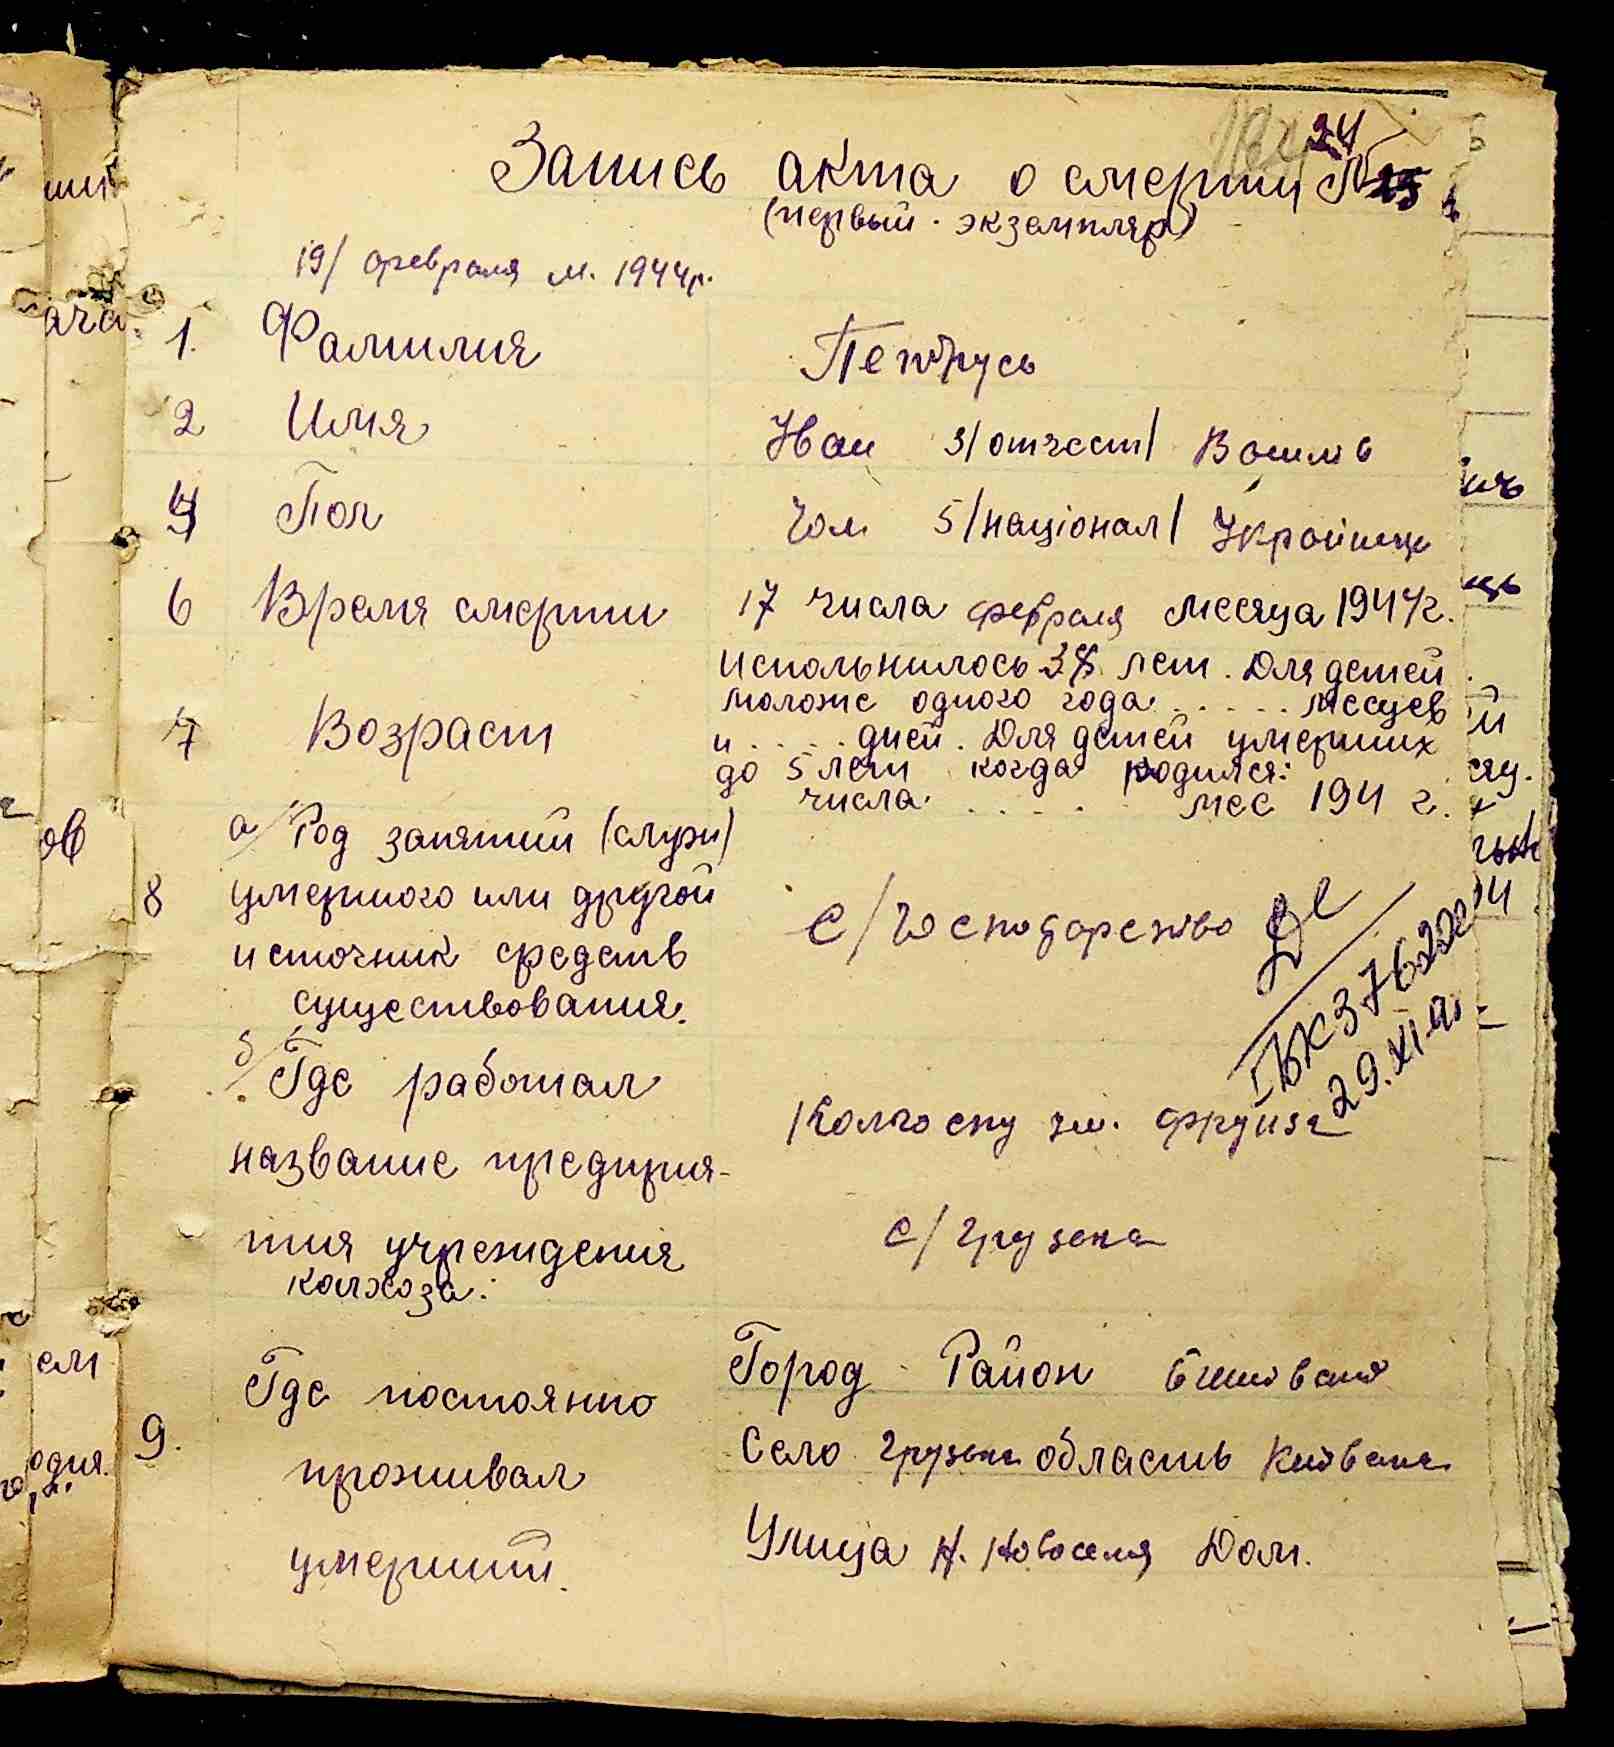 24
Запись акта о смерти № 25
(первый экземпляр)
19/ февраля м. 1944р.
1. Фамилия Петрусь
2 Имя Иван 3/отчест/ Васильв
4 Пол Чол 5/націонал/ Українець
6 Время смерти 17 числа февраля месяца 1944г.
7 Возраст
испольнилось 38 лет. Для детей
моложе одного года ..... месецев
и ..... дней. Для детей умерших
до 5 лет когда родился:
числа ..... мес 194 г.
8 а/ Род занятий (служ)
умершого или другой
источник средств
существования.
С/Господарство
ІБК 376220
29.XI
б/ Где работал
название предприя-
тия учреждения
колхоза:
Колгоспу ім. Фрунзе
с/Грузька
9. Где постоянно
проживал
умерший.
Город Район
Село Грузька область Київська
Улица Н. Новоселия Дом.